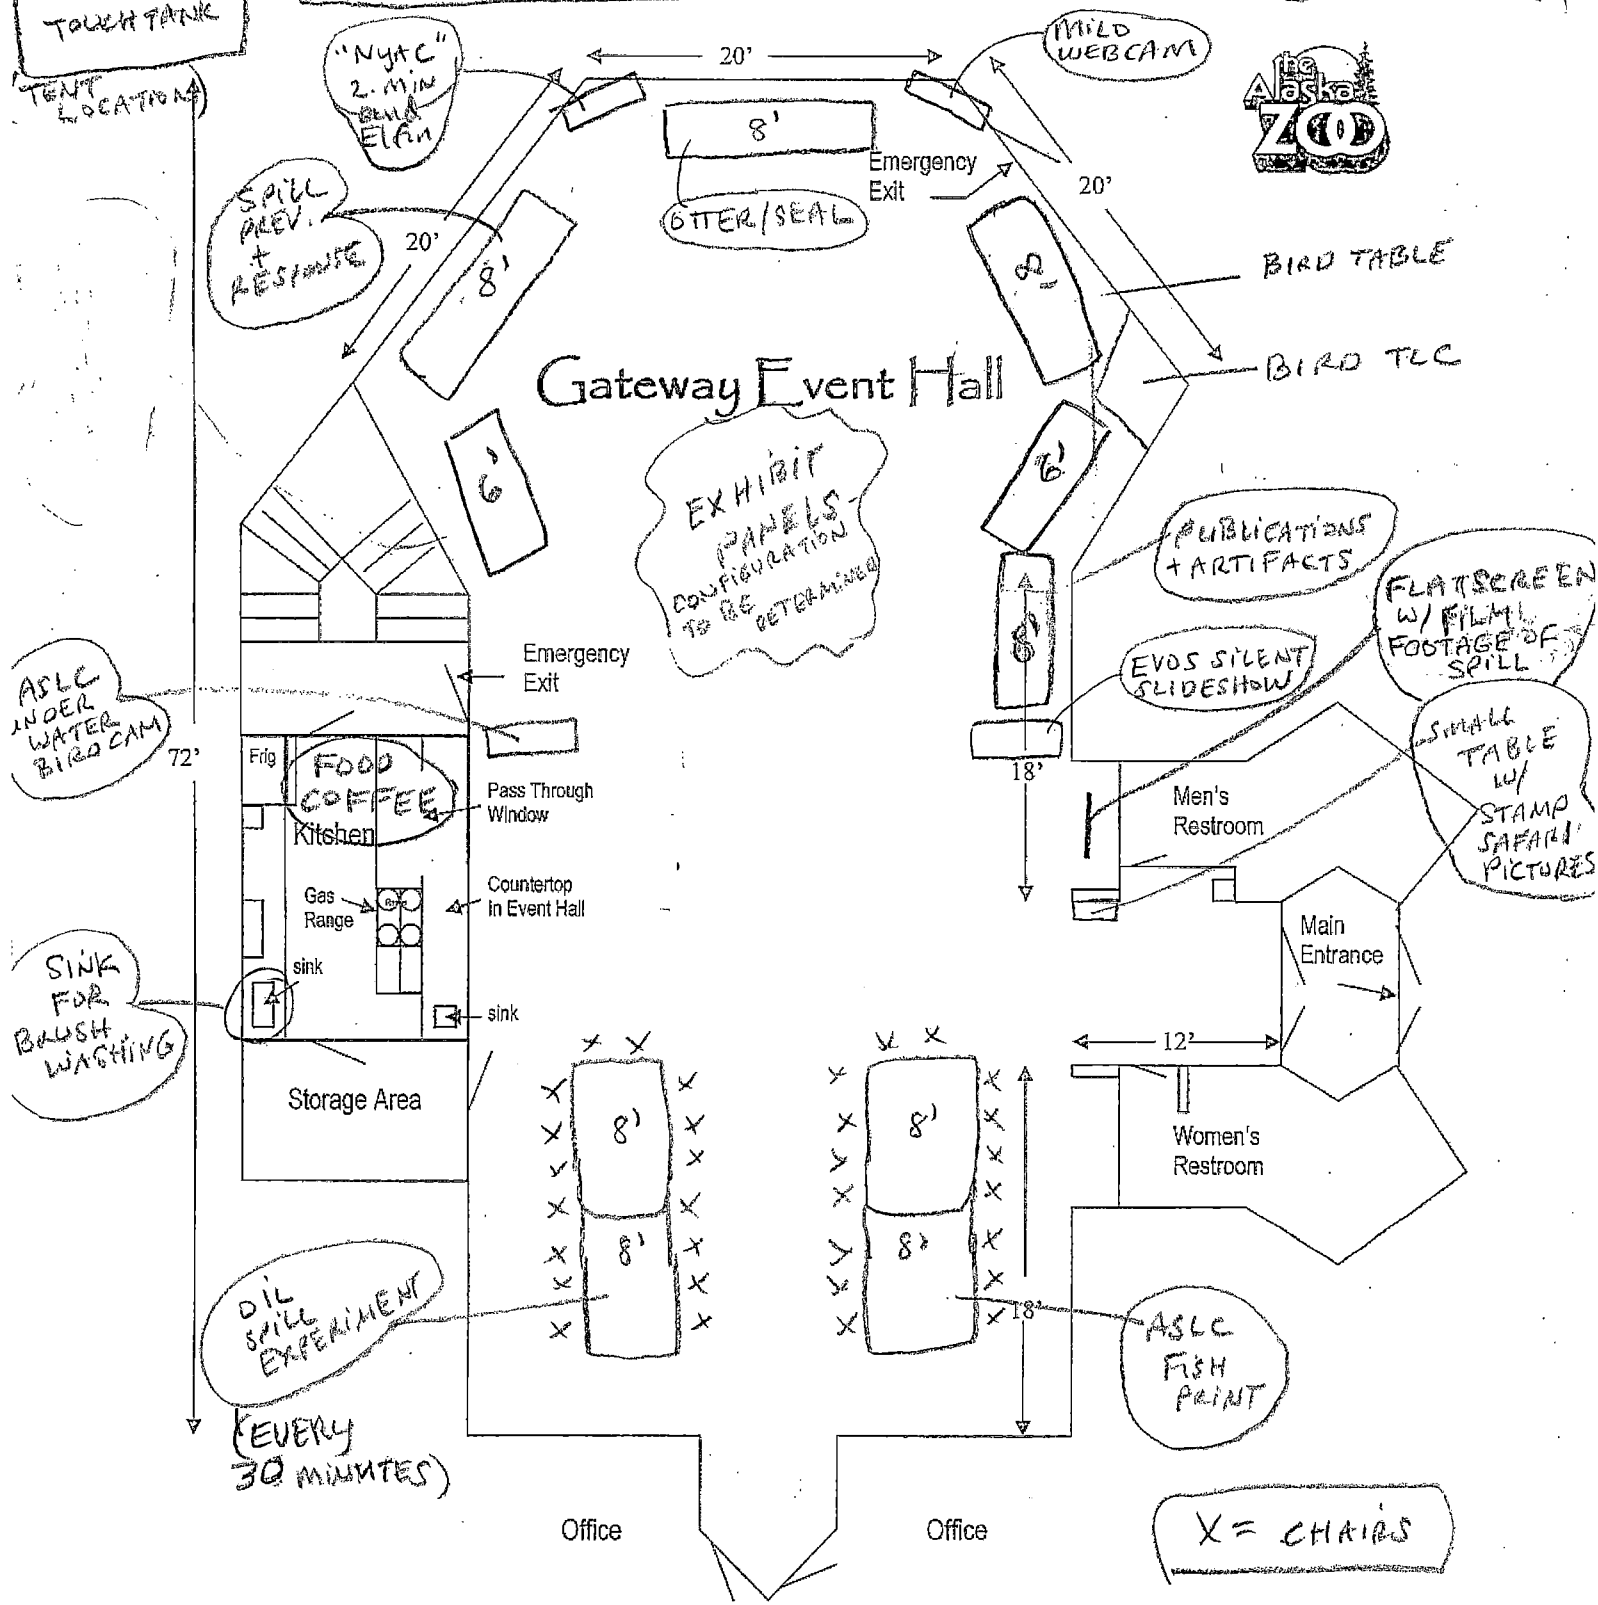 TOUCH TANK
TENT
LOCATION)
"NYAC"
2. MIN
Elfin
20'
MILD
WEBCAM
the
Alaska
ZOO
8'
Emergency
Exit
20'
SPILL
PREV.
+
RESPONSE
20'
8'
OTTER/SEAL
8'
BIRD TABLE
BIRD TLC
Gateway Event Hall
6'
EXHIBIT
PANELS-
CONFIGURATION
TO BE
DETERMINED
6'
PUBLICATIONS
+ ARTIFACTS
8'
FLATSCREEN
W/ FILM
FOOTAGE OF
SPILL
EVOS SILENT
SLIDESHOW
Emergency
Exit
ASLC
UNDER
WATER
BIRD CAM
72'
Frig
FOOD
COFFEE
Kitchen
Pass Through
Window
18'
Men's
Restroom
SMALL
TABLE
W/
STAMP
SAFARI
PICTURES
Gas
Range
Countertop
in Event Hall
Main
Entrance
SINK
FOR
BRUSH
WASHING
sink
sink
12'
X X
X X
Storage Area
8'
8'
Women's
Restroom
8'
8'
X X X X X X X
X X X X X X X
X X X X X X X
X X X X X X X
OIL
SPILL
EXPERIMENT
(EVERY
30 MINUTES)
18'
ASLC
FISH
PRINT
Office
Office
X = CHAIRS